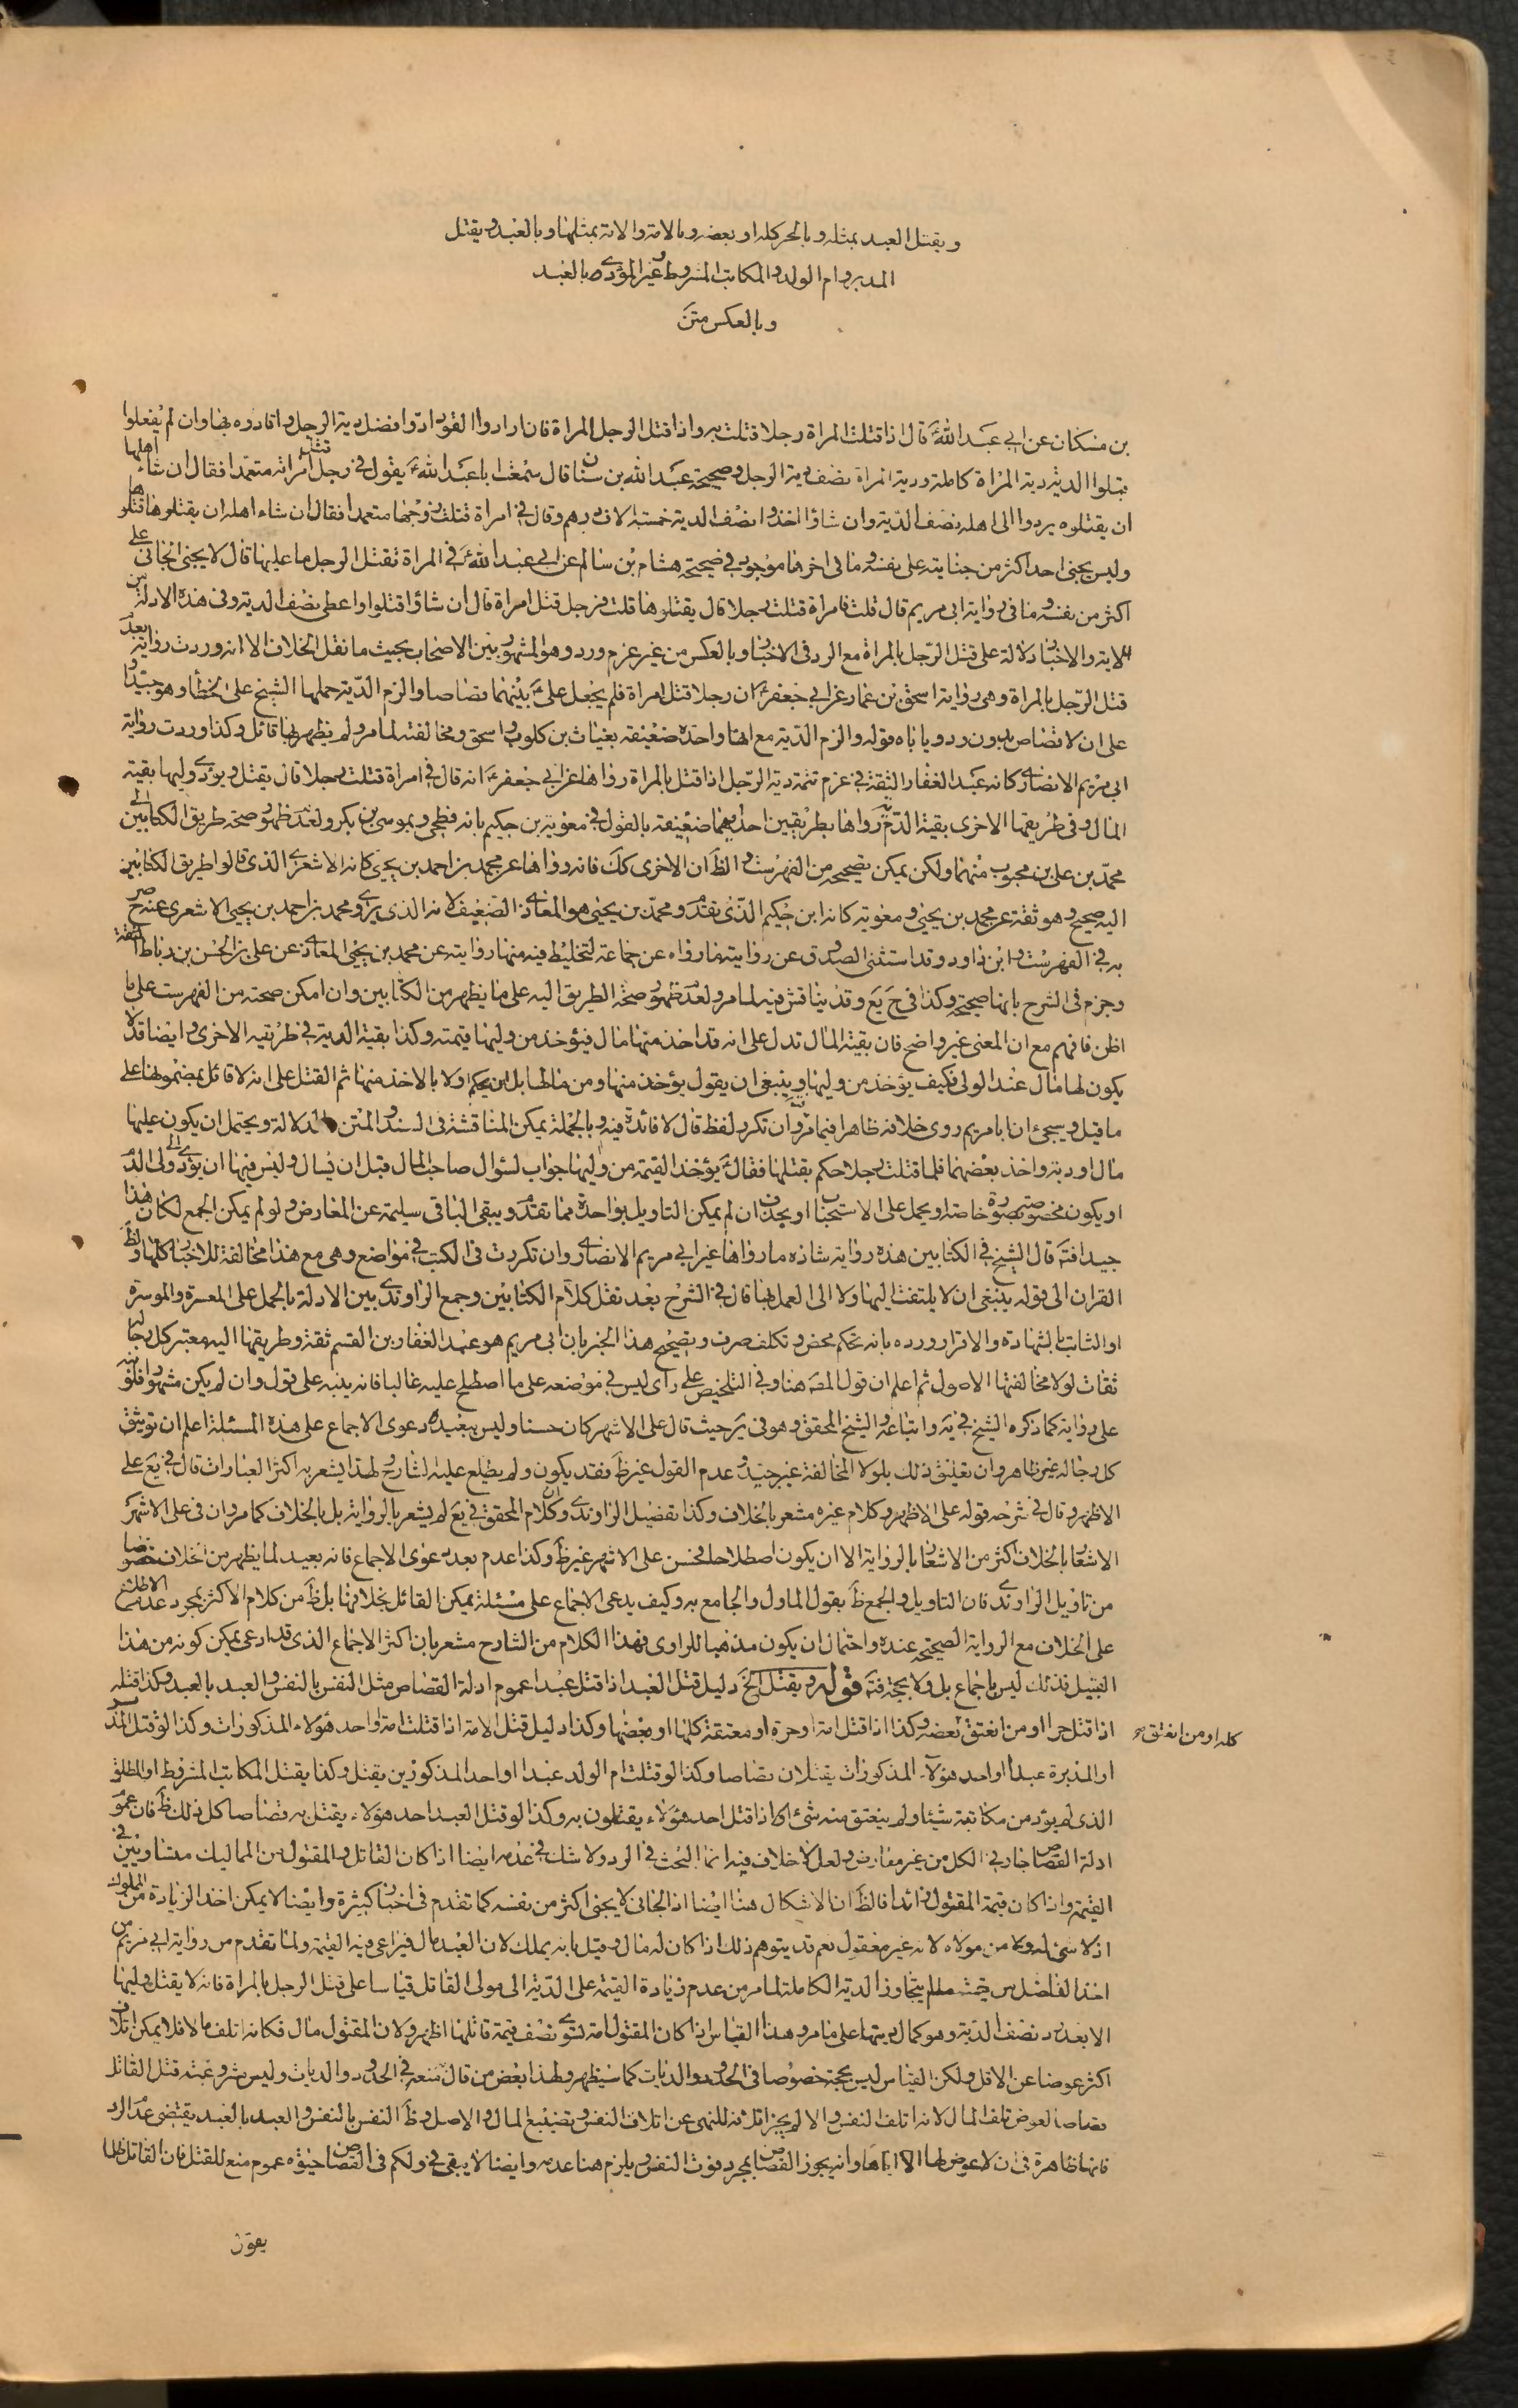 ويقتل العبد بمثله وبالحر كله او بعضه وبالامة والامة بمثلها وبالعبد ويقتل
المدبر وام الولد والمكاتب المشروط وغير المؤدى بالعبد
وبالعكس متن
بن مسكان عن ابي عبد الله ع قال اذا قتلت المراة رجلا قتلت به واذا قتل الرجل المراة فان ارادوا القود ادوا فضل دية الرجل واقادوه بها وان لم يفعلوا
قبلوا الدية دية المراة كاملة ودية المراة نصف دية الرجل وصحيحة عبد الله بن سنان قال سمعت ابا عبد الله ع يقول في رجل قتل امراته متعمدا فقال ان شاء اهلها
ان يقتلوه يردوا الى اهله نصف الدية وان شاؤا اخذوا نصف الدية خمسة الاف درهم وقال في امراة قتلت زوجها متعمدا فقال ان شاء اهله ان يقتلوها قتلوها
وليس يجنى احد اكثر من جنايته على نفسه وما في اخرها موجود في صحيحة هشام بن سالم عن ابي عبد الله ع في المراة تقتل الرجل ما عليها قال لا يجنى الجانى على
اكثر من نفسه وما في رواية ابي مريم قال قلت امراة قتلت رجلا قال يقتلوها قلت فرجل قتل امراة قال ان شاؤا قتلوا واعطى نصف الدية وفى هذه الادلة من
الاية والاخبار دلالة على قتل الرجل بالمراة مع الرد في الاخبار وبالعكس من غير غرم ورد وهو المشهور بين الاصحاب بحيث ما نقل الخلاف الا انه وردت رواية بعدم
قتل الرجل بالمراة وهى رواية اسحق بن عمار عن ابي جعفر ع ان رجلا قتل امراة فلم يجعل على ع بينهما قصاصا والزم الدية حملها الشيخ على الخطأ وهو جيد او
على ان لا قصاص بدون رد ويأباه قوله والزم الدية مع انها واحدة ضعيفة بغياث بن كلوب واسحق ومخالفته لما مر ولم يظهر بها قائل وكذا وردت رواية
ابي مريم الانصاري كانه عبد الغفار الثقة في غرم تتمة دية الرجل اذا قتل بالمراة رواها عن ابي جعفر ع انه قال في امراة قتلت رجلا قال يقتل ويؤدى وليها بقية
المال وفى طريقها الاخرى بقية الدية رواها بطريقين احديهما ضعيفة بالقول في معوية بن حكيم بانه فطحى وبموسى بن بكر ولعدم ظهور صحة طريق الكتابين الى
محمد بن على بن محبوب منهما ولكن يمكن تصحيحه من الفهرست والظ ان الاخرى كك فانه رواها عن محمد بن احمد بن يحيى كانه الاشعرى الذى قالوا طريق الكتابين
اليه صحيح وهو ثقة عن محمد بن يحيى ومعوية كانه ابن حكيم الذى تقدم ومحمد بن يحيى هو المعاذى الضعيف لانه الذى يروى محمد بن احمد بن يحيى الاشعرى عنه صرح
به في الفهرست وابن داود وقد استثنى الصدوق عن روايته ما رواه عن جماعة لتخليط فيه منها روايته عن محمد بن يحيى المعاذى عن على بن الحسن بن رباط الثقة
وجزم في الشرح بانها صحيحة وكذا في ح يع وقد يناقش فيه لما مر ولعدم ظهور صحة الطريق اليه على ما يظهر من الكتابين وان امكن صحته من الفهرست على ما
اظن فافهم مع ان المعنى غير واضح فان بقية المال تدل على انه قد اخذ منها مال فيؤخذ من وليها قيمته وكذا بقية الدية في طريقه الاخرى وايضا قد لا
يكون لها مال عند الولى فكيف يؤخذ من وليها وينبغى ان يقول يؤخذ منها ومن مالها بل لم يحكم اولا بالاخذ منها ثم القتل على انه لا قائل بمضمونها على
ما قيل وسيجئ ان ابا مريم روى خلافه ظاهرا فيما مر وان تكرر لفظ قال لا فائدة فيه وبالجملة يمكن المناقشة في السند والمتن والدلالة ويحتمل ان يكون عليها
مال او دية واخذ بعضهما فلما قتلت رجلا حكم بقتلها فقال ع يؤخذ القيمة من وليها جواب لسؤال صاحب المال قبل ان يسال وليس فيها ان يؤدى الى ولى الدم
او يكون مخصوصة بصورة خاصة ويحمل على الاستحباب او يحذف ان لم يمكن التاويل بواحدة مما تقدم ويبقى الباقى سليمة عن المعارض ولو لم يمكن الجمع لكان هذا
جيدا فت قال الشيخ في الكتابين هذه رواية شاذة ما رواها غير ابي مريم الانصاري وان تكررت في الكتب في مواضع وهى مع هذا مخالفة للاخبار كلها ولظ
القران الى قوله ينبغى ان لا يلتفت اليها ولا الى العمل بها قال في الشرح بعد نقل كلام الكتابين وجمع الراوندى بين الادلة بالحمل على المعسرة والموسرة
او الثابت بالشهادة والاقرار ورده بانه تحكم محض وتكلف صرف وبصحيح هذا الخبر بان ابى مريم هو عبد الغفار بن القسم ثقة وطريقها اليه معتبر كل رجاله
ثقات لولا مخالفتها الاصول ثم اعلم ان قول المص هنا وفي التلخيص على رأى ليس في موضعه على ما اصطلح عليه غالبا فانه ينبه على قول وان لم يكن مشهورا فلو نبه
على رواية كما ذكره الشيخ في ية واتباعه والشيخ المحقق وهو في ير حيث قال على الاشهر كان حسنا وليس ببعيد دعوى الاجماع على هذه المسئلة اعلم ان توثيق
كل رجاله غير ظاهر وان تعليق ذلك بلولا المخالفة غير جيد وعدم القول غير ظ فقد يكون ولم يطلع عليه الشارح لهذا يشعر به اكثر العبارات قال في يع على
الاظهر وقال في شرحه قوله على الاظهر وكلام غيره مشعر بالخلاف وكذا تفضيل الراوندى وان كلام المحقق في يع لم يشعر بالرواية بل بالخلاف كما مر وان في على الاشهر
الاشعار بالخلاف اكثر من الاشعار بالرواية الا ان يكون اصطلاحا فحسن على الاشهر غير ظ وكذا عدم بعد دعوى الاجماع فانه بعيد لما يظهر من الخلاف خصوصا
من تاويل الراوندى فان التاويل والجمع ظ بقول الماول والجامع به وكيف يدعى الاجماع على مسئلة يمكن القائل بخلافها بل ظ من كلام الاكثر بمجرد عدم الاطلاع
على الخلاف مع الرواية الصحيحة عنده واحتمال ان يكون مذهبا للراوى فهذا الكلام من الشارح مشعر بان اكثر الاجماع الذى قد ادعى يمكن كونه من هذا
القبيل فذلك ليس باجماع بل ولا بحجة فت قوله ويقتل الخ دليل قتل العبد اذا قتل عبدا عموم ادلة القصاص مثل النفس بالنفس والعبد بالعبد وكذا قتله
اذا قتل حرا او من انعتق بعضه وكذا اذا قتل امة او حرة او معتقة كلها او بعضها وكذا دليل قتل الامة اذا قتلت امة او احد هؤلاء المذكورات وكذا لو قتل المدبر
كله او من انعتق
او المدبرة عبدا او احد هؤلاء المذكورات يقتلان قصاصا وكذا لو قتلت ام الولد عبدا او احد المذكورين يقتل وكذا يقتل المكاتب المشروط او المطلق
الذى لم يؤد من مكاتبته شيئا ولم ينعتق منه شئ اى اذا قتل احد هؤلاء يقتلون به وكذا لو قتل العبد احد هؤلاء يقتل به قصاصا كل ذلك ظ فان عموم
ادلة القصاص جار في الكل من غير معارض ولعل لا خلاف فيه انما البحث في الرد ولا شك في عدمه ايضا اذا كان القاتل والمقتول من المماليك متساويين في
القيمة واذا كان قيمة المقتول زائدا فالظ ان لا اشكال هنا ايضا اذ الجانى لا يجنى اكثر من نفسه كما تقدم في اخبار كثيرة وايضا لا يمكن اخذ الزيادة من المملوك
اذ لا شئ له ولا من مولاه لانه غير معقول نعم قد يتوهم ذلك اذا كان له مال وقيل بانه يملك لان العبد مال فيراعى فيه القيمة ولما تقدم من رواية ابي مريم من
اخذ الفاضل من حيث لم يتجاوز الدية الكاملة لما مر من عدم زيادة القيمة على الدية الى مولى القاتل قياسا على قتل الرجل بالمراة فانه لا يقتل وليها
الا بعد رد نصف الدية وهو كمال ديتها على ما مر وهذا القياس اذا كان المقتول امة تسوى نصف قيمة قاتلها اظهر ولان المقتول مال فكانه اتلف مالا فلا يمكن اتلاف
اكثر عوضا عن الاقل ولكن القياس ليس بحجة خصوصا في الحدود والديات كما سيظهر ولهذا بعض من قال منعه في الحدود والديات وليس مشروعية قتل القاتل
قصاصا لعوض تلف المال لانه اتلف النفس والا لم يجز اتلافه للنهى عن اتلاف النفس وتضييع المال والاصل وظ النفس بالنفس والعبد بالعبد يقتضى عدم الرد
فانها ظاهرة في ان لا عوض لها الا اياها وانه يجوز القصاص بمجرد فوت النفس ويلزم هنا عدمه وايضا لا يبقى في ولكم في القصاص حيوة عموم منع للقتل فان القاتل ظلما
يقول